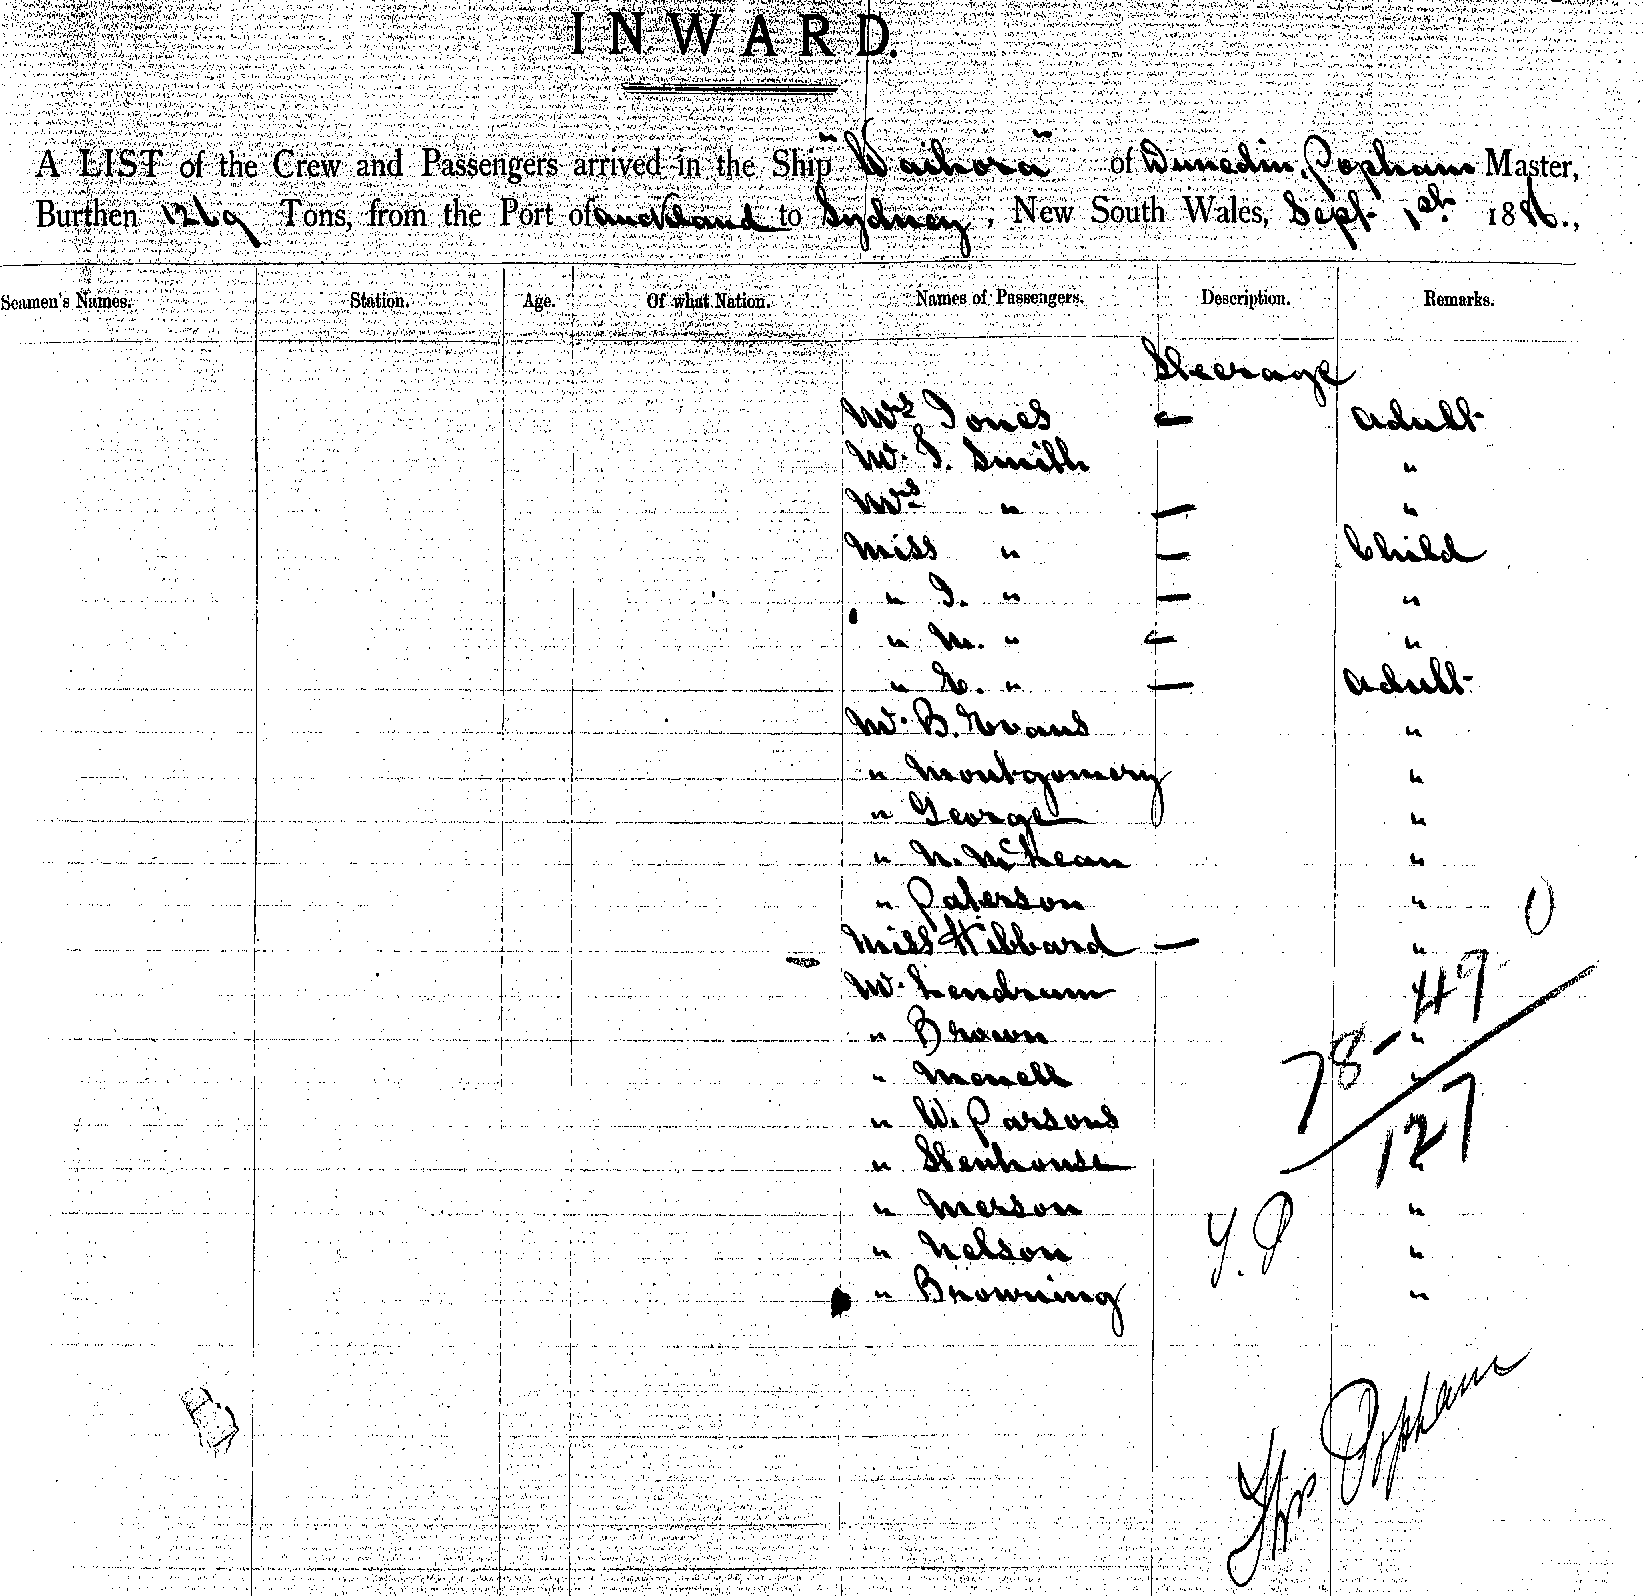 INWARD.
A LIST of the Crew and Passengers arrived in the Ship "Waihora" of Dunedin, Popham Master,
Burthen 1269 Tons, from the Port of auckland to Sydney, New South Wales, Sept 1st 1886.,
Seamen's Names. Station. Age. Of what Nation. Names of Passengers. Description. Remarks.
Steerage
Mrs Jones — adult
Mr. J. Smith "
Mrs " — "
Miss " — Child
" J. " — "
" M. " — "
" E. " — adult
Mr. B. Evans "
" Montgomery "
" George "
" N. McLean "
" Paterson "
Miss Hibbard — "
Mr. Lendrum
" Brown "
" Menell "
" W. Parsons
" Stenhouse "
" Merson "
" Nelson "
" Browning "
0
78 - 49
127
Y. P
Thos Popham